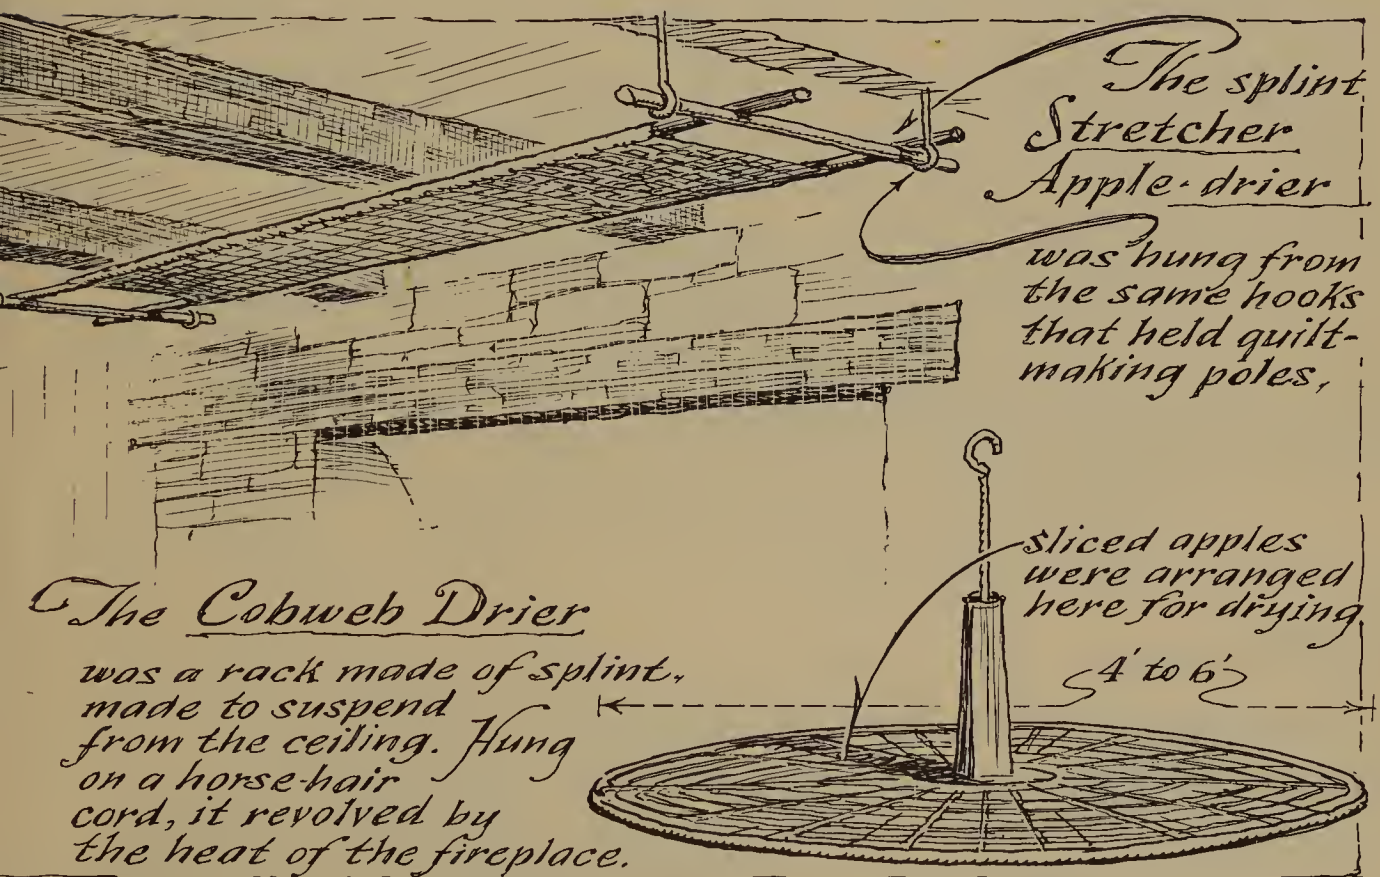 The splint
Stretcher
Apple-drier
was hung from
the same hooks
that held quilt-
making poles,
sliced apples
were arranged
here for drying
4' to 6'
The Cobweb Drier
was a rack made of splint,
made to suspend
from the ceiling. Hung
on a horse-hair
cord, it revolved by
the heat of the fireplace.